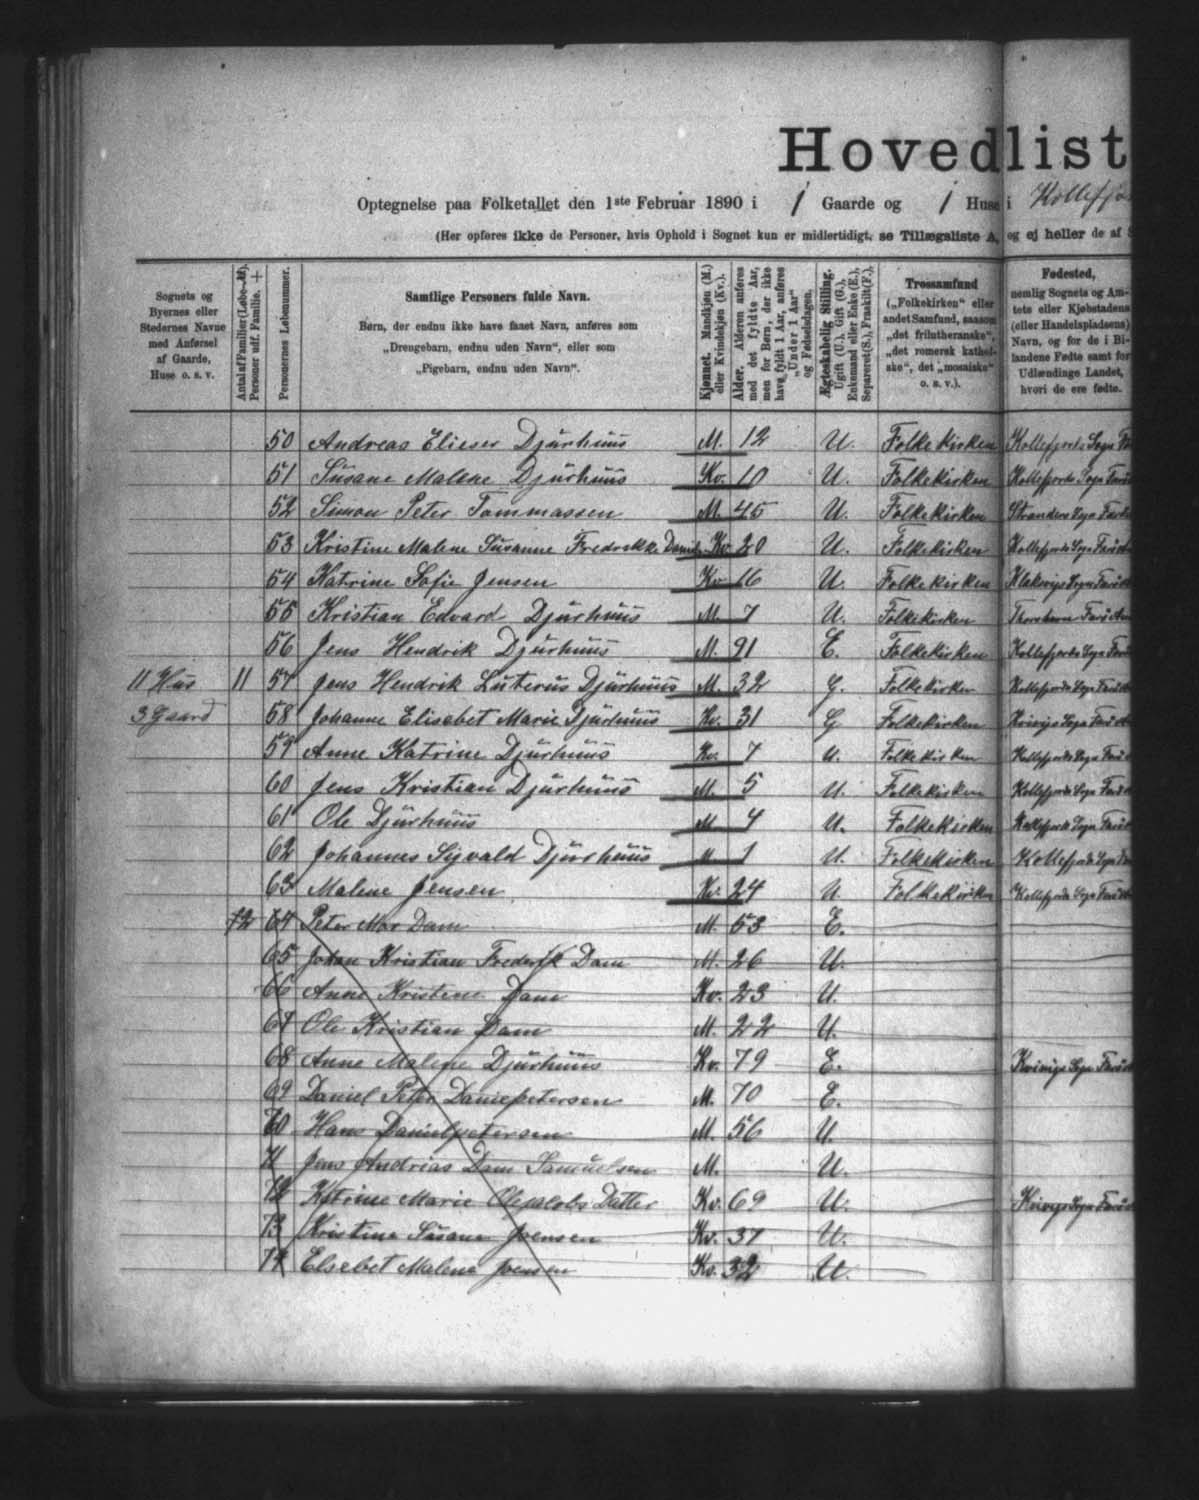 Hovedlist
Optegnelse paa Folketallet den 1ste Februar 1890 i 1 Gaarde og 1 Huse i Kollefjo
(Her opføres ikke de Personer, hvis Ophold i Sognet kun er midlertidigt, se Tillægsliste A, og ej heller de af
Sognets og Byernes eller Stedernes Navne med Anførsel af Gaarde, Huse o. s. v.
Antal af Familier (Løbe-Nr). Personer udf. Familie. +
Personernes Løbenummer.
Samtlige Personers fulde Navn.
Børn, der endnu ikke have faaet Navn, anføres som
„Drengebarn, endnu uden Navn“, eller som
„Pigebarn, endnu uden Navn“.
Kjønnet. Mandkjøn (M.) eller Kvindekjøn (Kv.).
Alder. Alderen anføres med det fyldte Aar, men for Børn, der ikke have fyldt 1 Aar, anføres „Under 1 Aar“ og Fødselsdagen.
Ægteskabelig Stilling. Ugift (U.), Gift (G.), Enkemand eller Enke (E.), Separeret (S.), Fraskilt (F.).
Trossamfund („Folkekirken“ eller andet Samfund, saasom „det frilutheranske“, „det romersk katholske“, det „mosaiske“ o. s. v.).
Fødested, nemlig Sognets og Amtets eller Kjøbstadens (eller Handelspladsens) Navn, og for de i Bilandene Fødte samt for Udlændinge Landet, hvori de ere fødte.
50 Andreas Elieser Djurhuus M. 12 U. Folkekirken Kollefjords Sogn
51 Susane Malene Djurhuus Kv. 10 U. Folkekirken Kollefjords Sogn Farö
52 Simon Peter Tommassen M. 45 U. Folkekirken Stranders Sogn Farö
53 Kristine Malene Susanne Fredrikke Kv 20 U. Folkekirken Kollefjords Sogn Farö
54 Katrine Sofie Jensen Kv 16 U. Folkekirken Klaksvigs Sogn Farö
55 Kristian Edvard Djurhuus M. 7 U. Folkekirken Thorshavn Farö
56 Jens Hendrik Djurhuus M. 91 E. Folkekirken Kollefjords Sogn Farö
11 Hus 11 57 Jens Hendrik Luterus Djurhuus M. 32 G. Folkekirken Kollefjords Sogn Farö
3 Gaard 58 Johanne Elisabet Marie Djurhuus Kv. 31 G Folkekirken Kvivigs Sogn Farö
59 Anne Katrine Djurhuus Kv. 7 U. Folkekirken Kollefjords Sogn Farö
60 Jens Kristian Djurhuus M. 5 U. Folkekirken Kollefjords Sogn Farö
61 Ole Djurhuus M 4 U. Folkekirken Kollefjords Sogn Farö
62 Johannes Sijvald Djurhuus M 1 U. Folkekirken Kollefjords Sogn
63 Malene Jensen Kv. 24 U Folkekirken Kollefjords Sogn Farö
12 64 Peter Mor Dam M. 53 E.
65 Johan Kristian Frederik Dam M. 26 U.
66 Anne Kristene Dam Kv. 23 U.
67 Ole Kristian Dam M. 22 U.
68 Anne Malene Djurhuus Kv. 79 E. Kvivigs Sogn Farö
69 Daniel Peter Danielpetersen M. 70 E.
70 Hans Danielpetersen M. 56 U.
71 Jens Andrias Dam Samuelsen M. U.
72 Katrine Marie Olejacobs Datter Kv. 69 U. Kvivigs Sogn Farö
73 Kristine Susane Joensen Kv. 37 U.
74 Elsebet Malene Joensen Kv. 32 U.